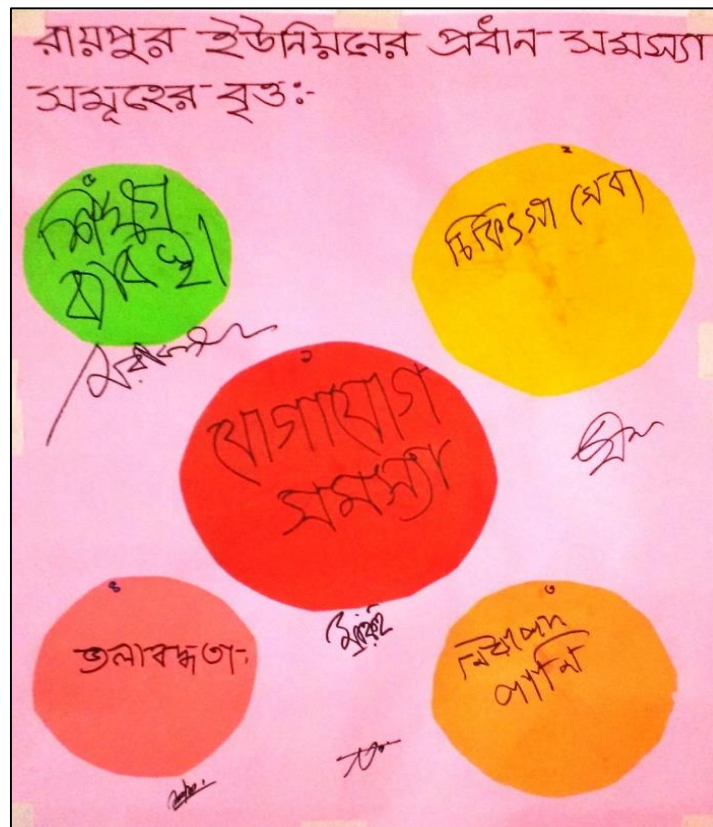 রায়পুর ইউনিয়নের প্রধান সমস্যা
সমূহের বৃত্ত:-
৫
ব্যবস্থা
২
চিকিৎসা সেবা
১
যোগাযোগ
সমস্যা
৪
জলাবদ্ধতা
৩
নিরাপদ
পানি